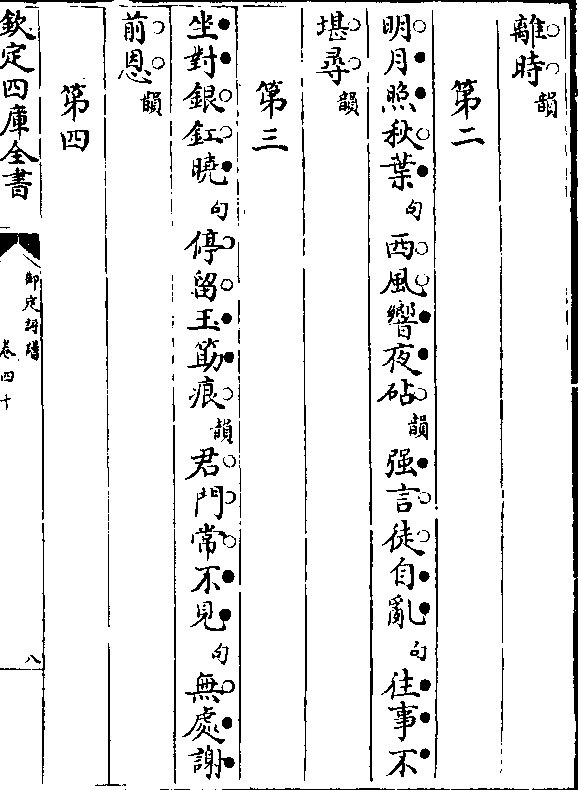 離時韻
第二
明月照秋葉句西風響夜砧韻强言徒自亂句往事不
堪尋韻
第三
坐對銀釭曉句停留玉筯痕韻君門常不見句無處謝
前恩韻
第四
欽定四庫全書
御定詞譜
卷四十
八